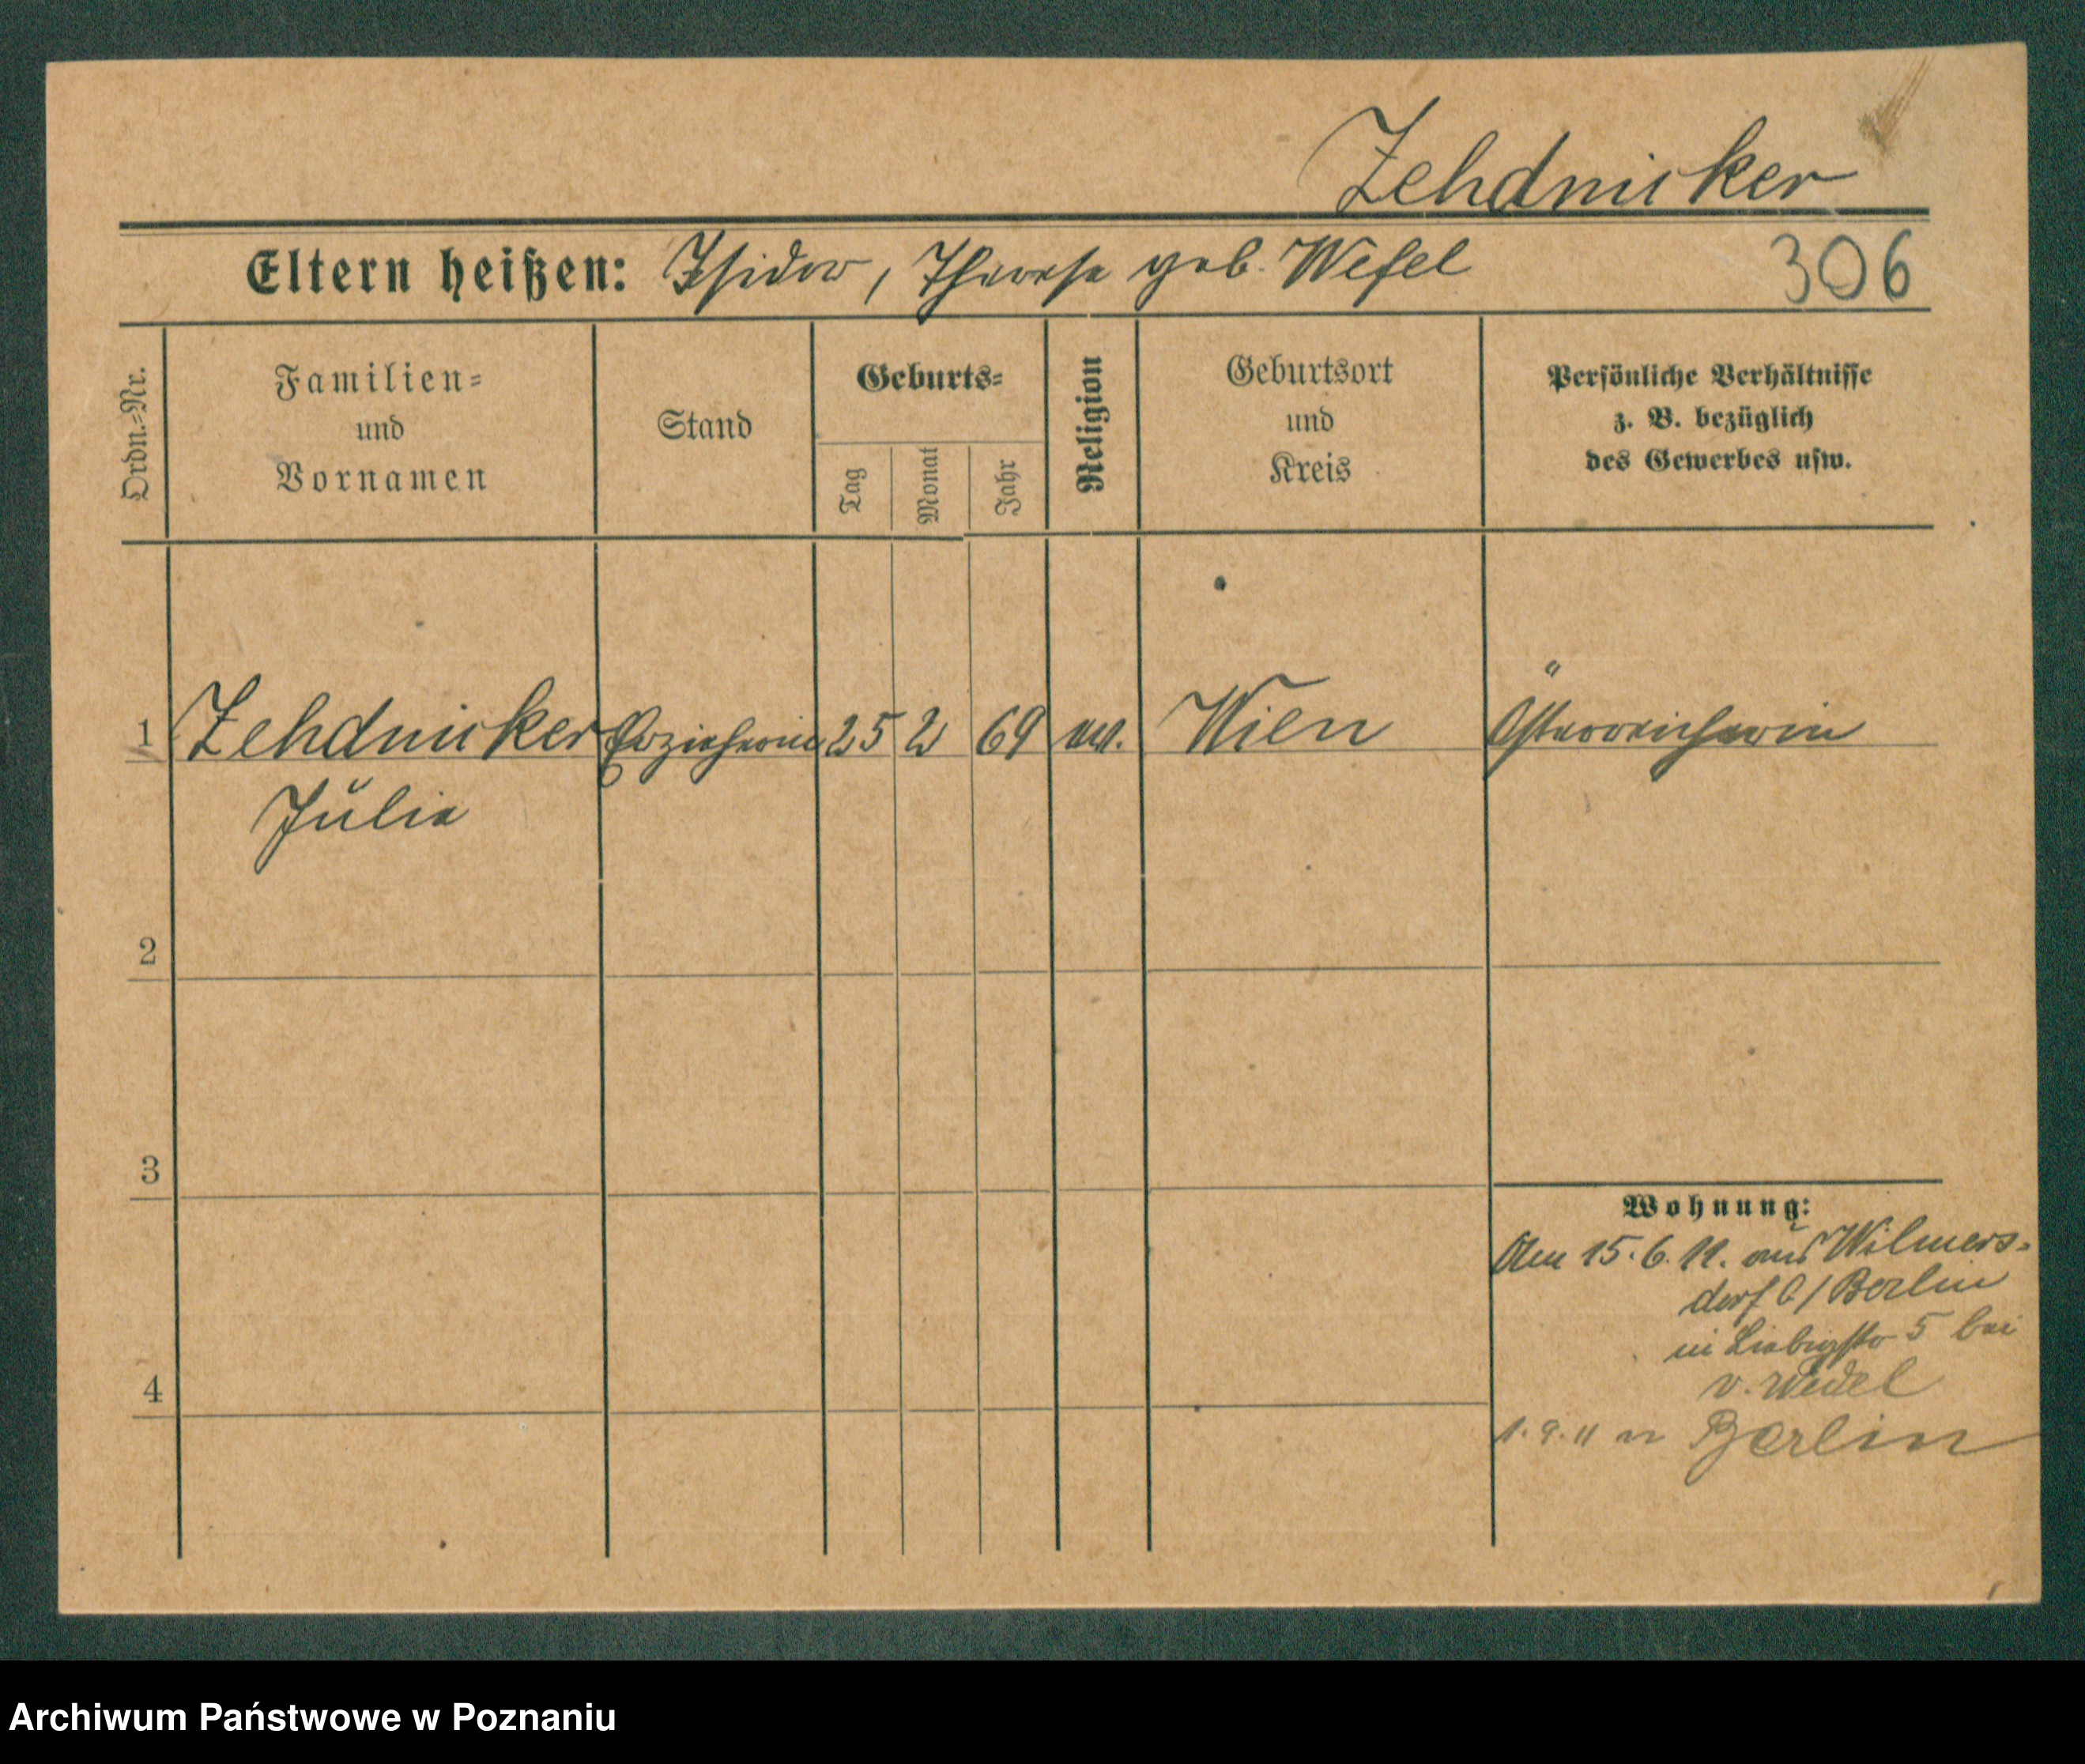 Zehdnicker
Eltern heißen: Isidor, Therese geb. Wesel
306
Ordn.=Nr.
Familien=
und
Vornamen
Stand
Geburts=
Tag
Monat
Jahr
Religion
Geburtsort
und
Kreis
Persönliche Verhältnisse
z. B. bezüglich
des Gewerbes usw.
1 Zehdnicker Erzieherin 25 2 69 ev. Wien Österreicherin
Julie
2
3
4
Wohnung:
Am 15.6.11. aus Wilmers-
dorf b/Berlin
in Liebigstr 5 bei
v. Wedel
1.9.11 n Berlin
Archiwum Państwowe w Poznaniu